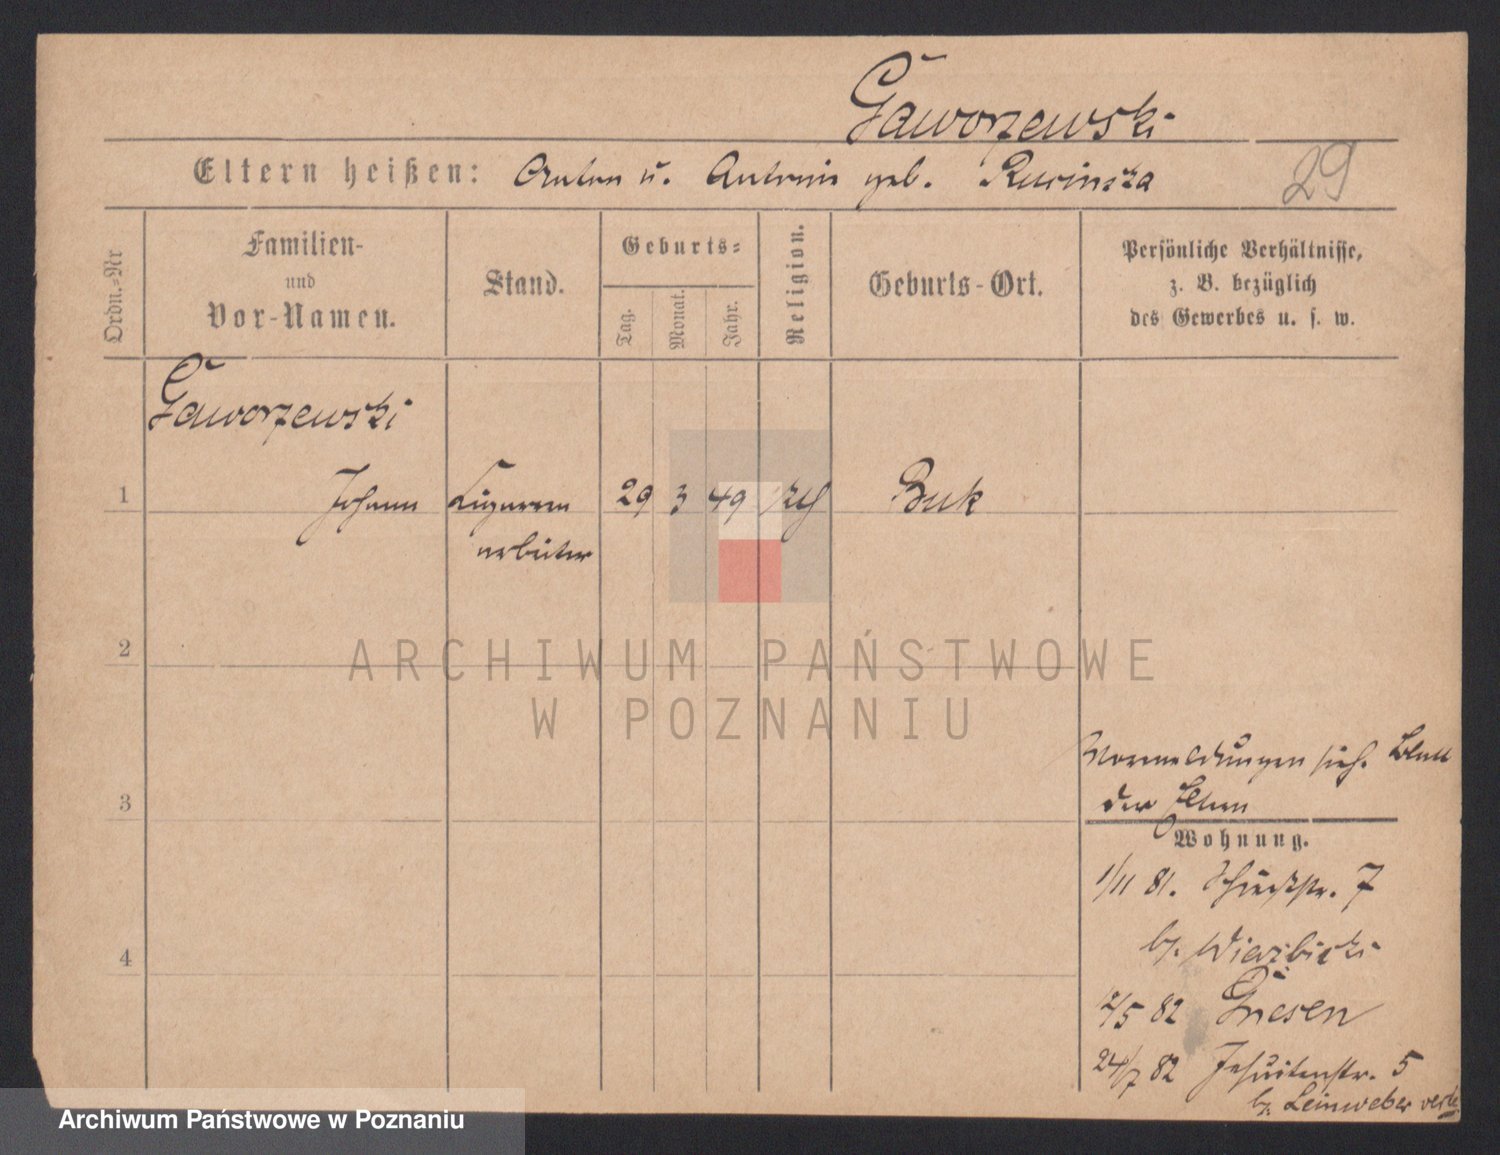 Gaworzewski
Eltern heißen: Anton u. Antonie geb. Rusinska
29
Ordn.-Nr
Familien-
und
Vor-Namen.
Stand.
Geburts-
Tag.
Monat.
Jahr.
Religion.
Geburts-Ort.
Persönliche Verhältnisse,
z. B. bezüglich
des Gewerbes u. s. w.
Gaworzewski
1 Johann Cigarren 29 3 49 Buk
arbeiter
2
ARCHIWUM PAŃSTWOWE
W POZNANIU
Vormeldungen sieh. Blatt
der Eltern
3
Wohnung.
1/11 81. 7
b. Wierzbicki
4
2/5 82 Gnesen
24/7 82 Jesuitenstr. 5
b. Leinweber
Archiwum Państwowe w Poznaniu